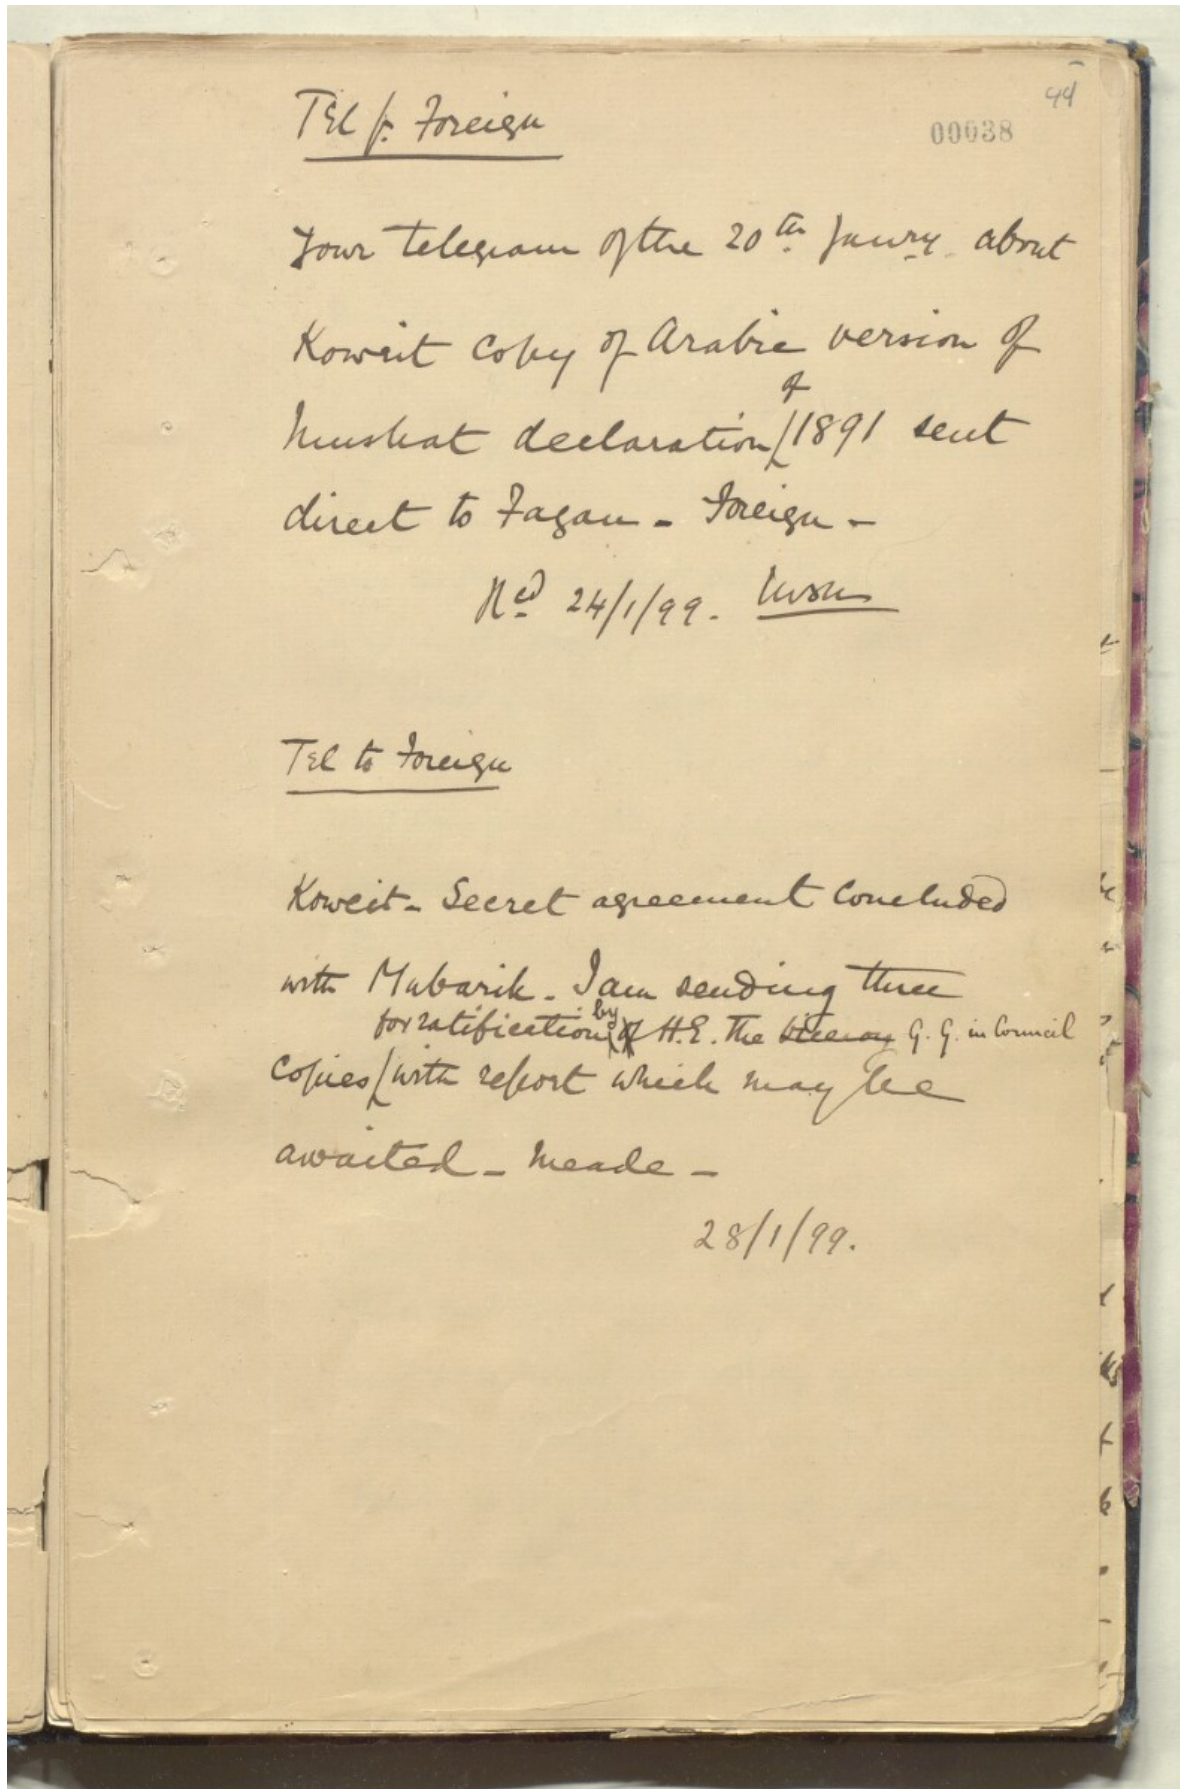 44
00038
Tel f. Foreign
Your telegram of the 20th Janry. about
Koweit copy of Arabic version of
of
Muskat declaration 1891 sent
direct to Fagan - Foreign -
Red 24/1/99.
Tel to Foreign
Koweit - Secret agreement concluded
with Mubarik. I am sending three
by
for ratification of H.E. the Viceroy G. G. in Council
copies with report which may be
awaited - Meade -
28/1/99.